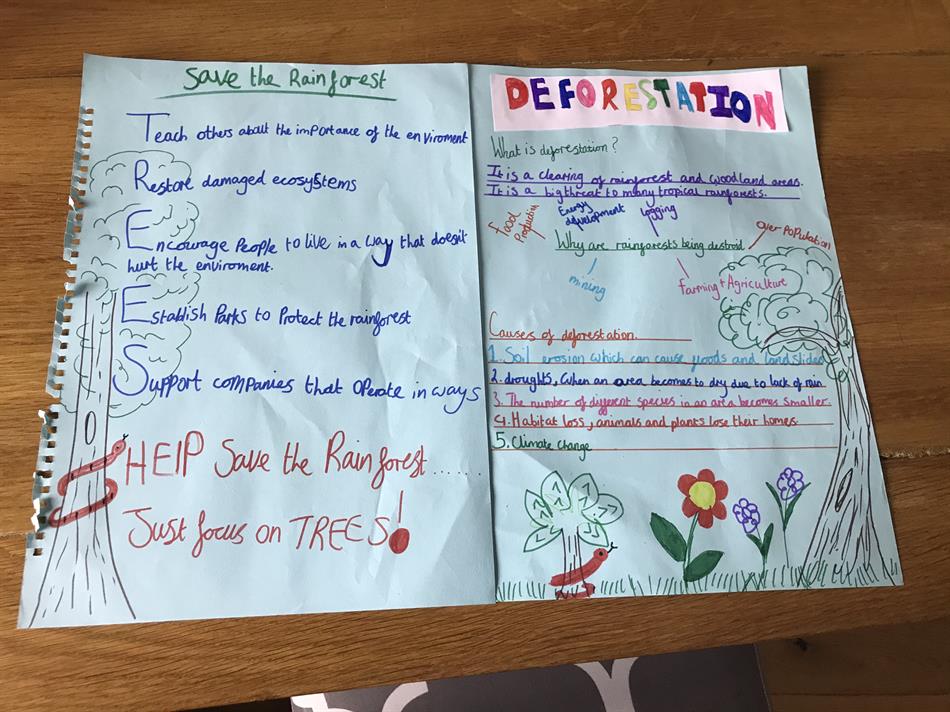 Save the Rainforest
Teach others about the importance of the enviroment
Restore damaged ecosystems
Encourage People to live in a way that doesn't
hurt the enviroment.
Establish Parks to Protect the rainforest
Support companies that operate in ways
HElP Save the Rainforest......
Just focus on TREES!
DEFORESTATION
What is deforestation?
It is a clearing of rainforest and woodland areas.
It is a big threat to many tropical rainforests.
Food
Production
Energy
development
logging
over Population
Why are rainforests being destroid
mining
farming + Agriculture
Causes of deforestation.
1. Soil erosion which can cause floods and landslides
2. droughts, When an area becomes to dry due to lack of rain.
3. The number of different species in an area becomes smaller.
4. Habitat loss, animals and plants lose their homes.
5. Climate Change